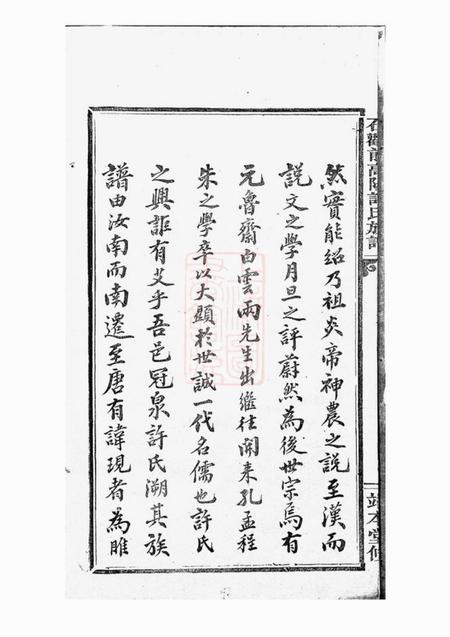 然實能紹乃祖炎帝神農之說至漢而
說文之學月旦之評蔚然為後世宗焉有
元魯齋白雲兩先生出繼往開来孔孟程
朱之學卒以大顯於世誠一代名儒也許氏
之興詎有艾乎吾邑冠泉許氏溯其族
譜由汝南而南遷至唐有諱現者為睢
高陽許氏族譜
端本堂修